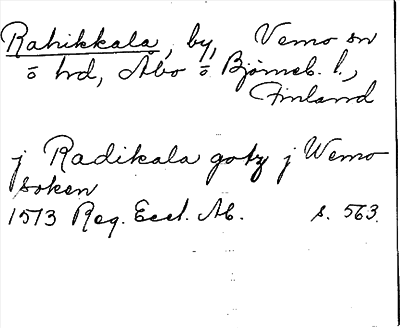 Rahikkala, by, Vemo sn
o hd, Åbo o Björneb. l.,
Finland
j Radikala gotz j Wemo
soken
1513 Reg. Eccl. Ab. s. 563.